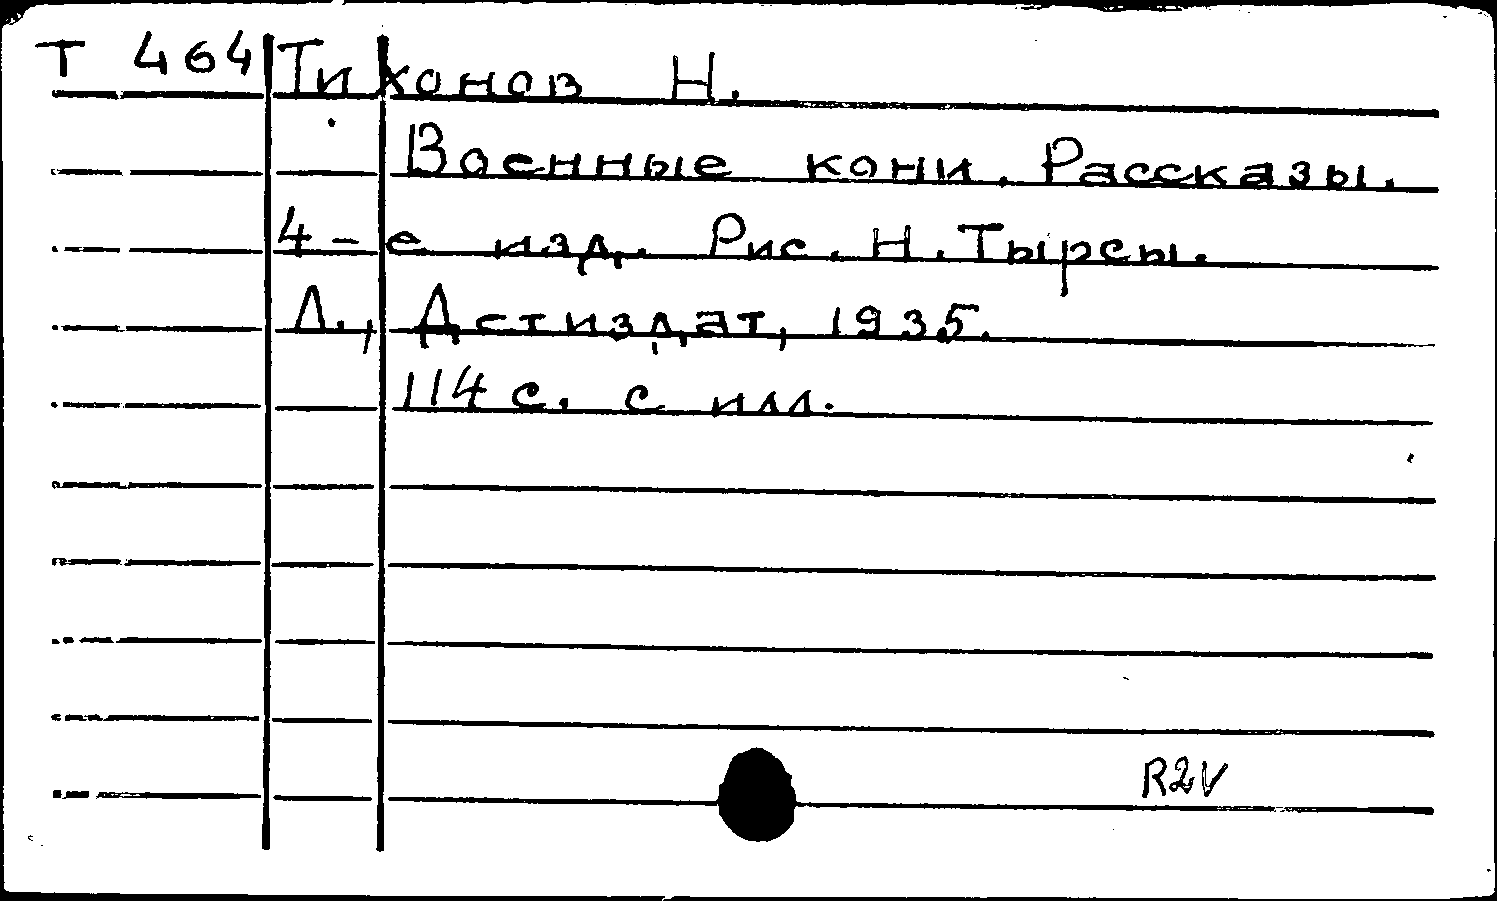 Т 464 Тихонов Н.
Военные кони. Рассказы.
4-е изд. Рис. Н. Тырсы.
Л., Детиздат, 1935.
114 с. с илл.
R2V